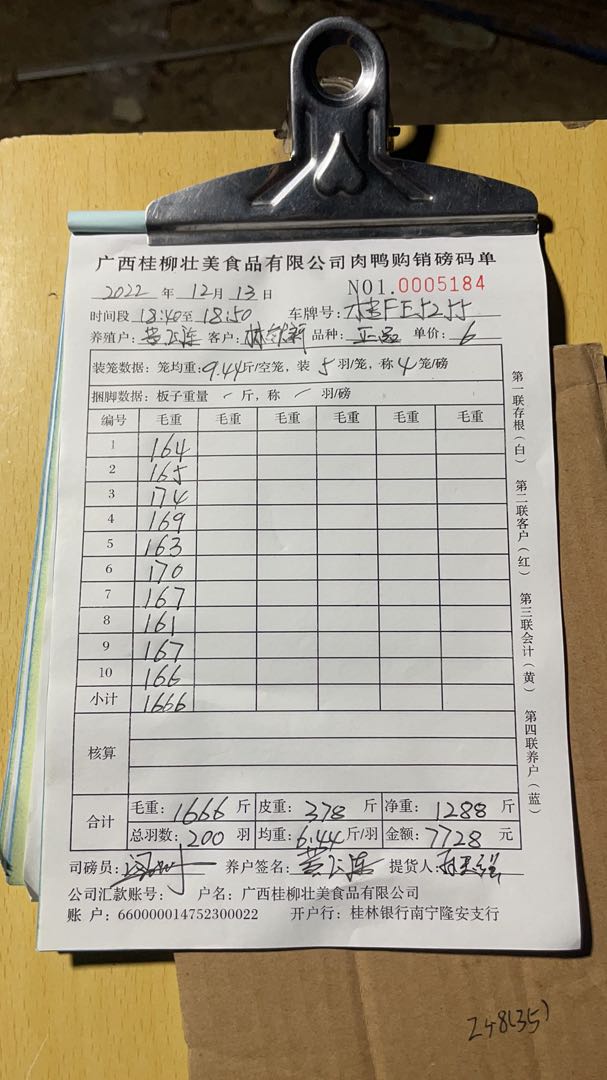 广西桂柳壮美食品有限公司肉鸭购销磅码单
2022 年 12 月 13 日 NO1.0005184
时间段 18:40至 18:50 车牌号: 桂FF5255
养殖户: 客户: 品种: 正品 单价: 6
装笼数据: 笼均重: 9.44斤/空笼, 装 5 羽/笼, 称 4 笼/磅
捆脚数据: 板子重量 / 斤, 称 / 羽/磅
编号 毛重 毛重 毛重 毛重 毛重 毛重
1 164
2 165
3 174
4 169
5 163
6 170
7 167
8 161
9 167
10 166
小计 1666
核算
合计 毛重: 1666 斤 皮重: 378 斤 净重: 1288 斤
总羽数: 200 羽 均重: 6.44 斤/羽 金额: 7728 元
司磅员: 养户签名: 提货人:
公司汇款账号: 户名: 广西桂柳壮美食品有限公司
账 户: 660000014752300022 开户行: 桂林银行南宁隆安支行
第一联存根(白) 第二联客户(红) 第三联会计(黄) 第四联养户(蓝)
248(35)